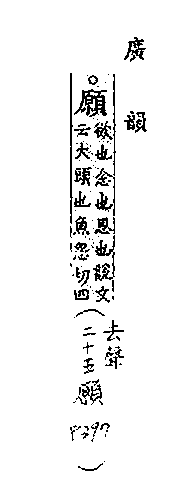 廣韻
○願欲也念也思也說文
云大頭也魚怨切四
(去聲
二十五願
P397)